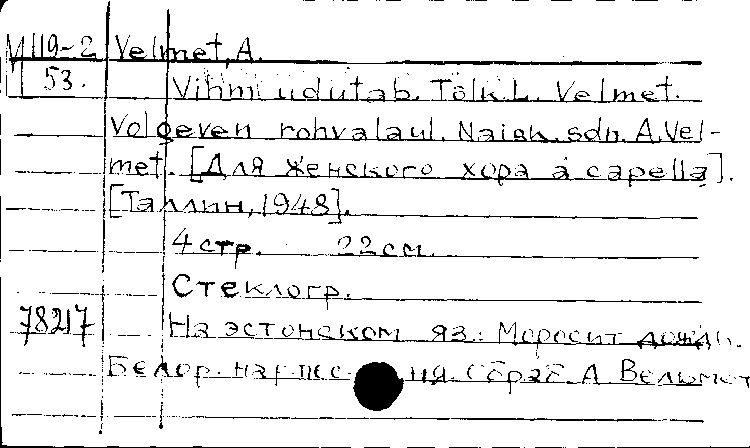 М119-2 Velmet, A.
53. Vihm udutab. Tõlk. L. Velmet.
Volgeven rohvalaul. Naisk. sdn. A. Vel-
met. [Для женского хора a capella].
[Таллин, 1948].
4 стр. 22 см.
Стеклогр.
78217 На эстонском яз.: Моросит дождь.
Белор. нар. пес ня. Обраб. А. Вельмет